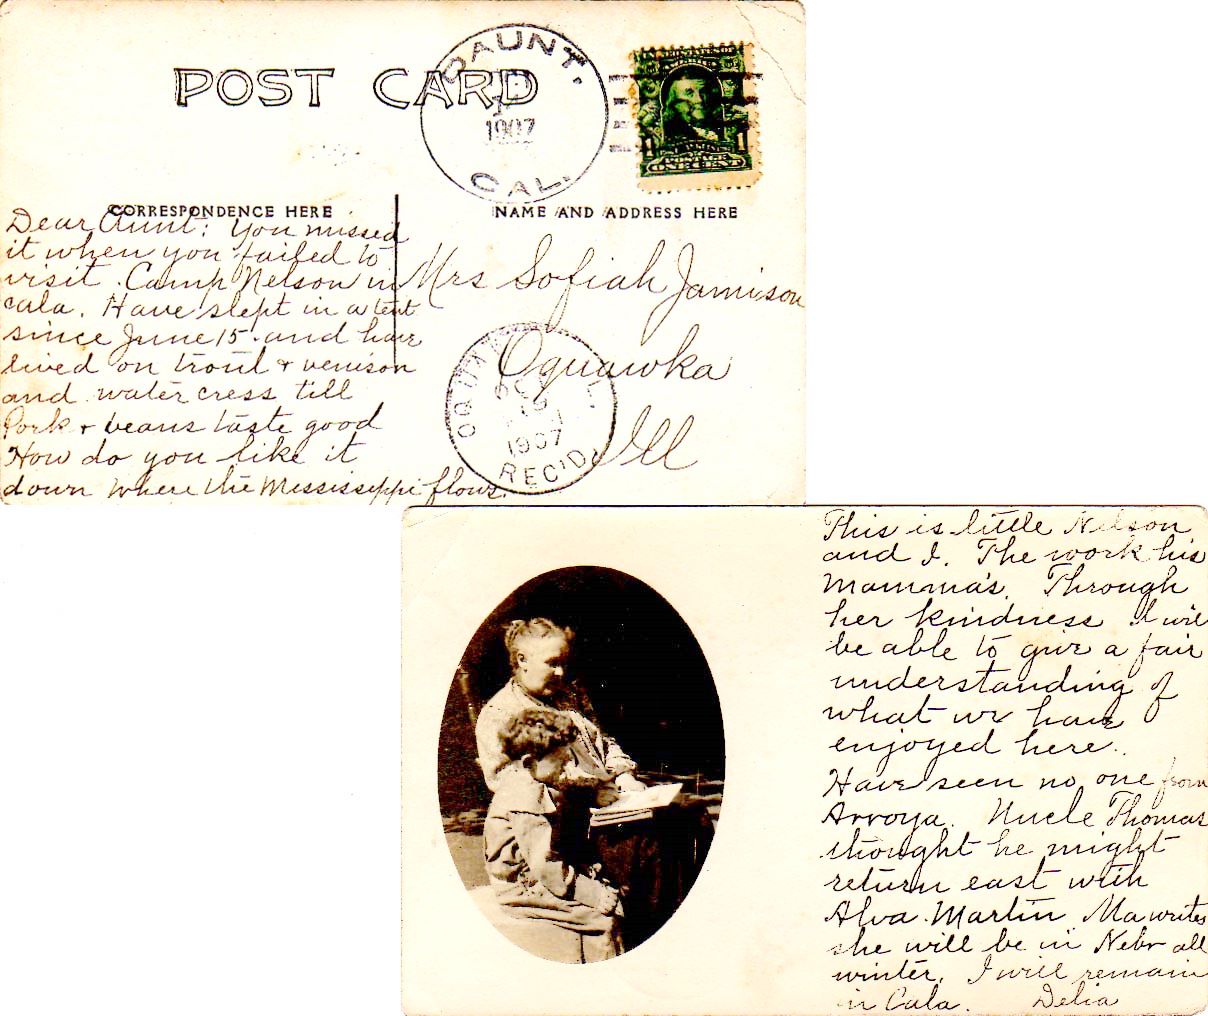 POST CARD
DAUNT.
1907
CAL.
ONE CENT
CORRESPONDENCE HERE
NAME AND ADDRESS HERE
Dear Aunt: You missed
it when you failed to
visit Camp Nelson in
Cala. Have slept in a tent
since June 15 and have
lived on trout & venison
and water cress till
Pork & beans taste good
How do you like it
down where the Mississippi flows.
Mrs Sofiah Jamison
Oquawka
Ill
OQUAWKA ILL.
OCT
19
1907
REC'D.
This is little Nelson
and I. The work his
Mamma's. Through
her kindness I will
be able to give a fair
understanding of
what we have
enjoyed here.
Have seen no one from
Arroya. Uncle Thomas
thought he might
return east with
Alva Martin Ma writes
she will be in Nebr all
winter. I will remain
in Cala. Delia